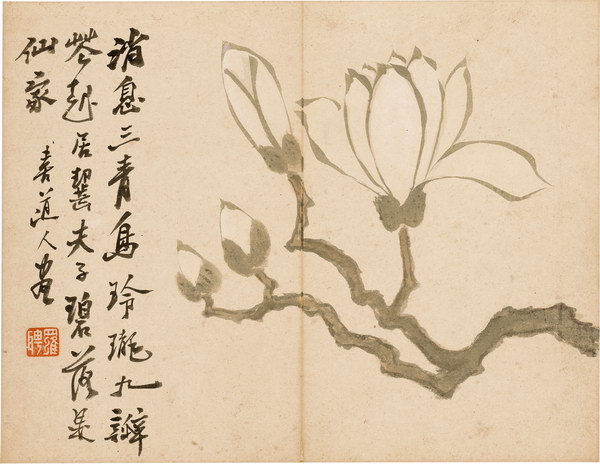 消息三青鳥玲瓏九瓣
花起居夫子碧落是
仙家
道人畫
羅聘